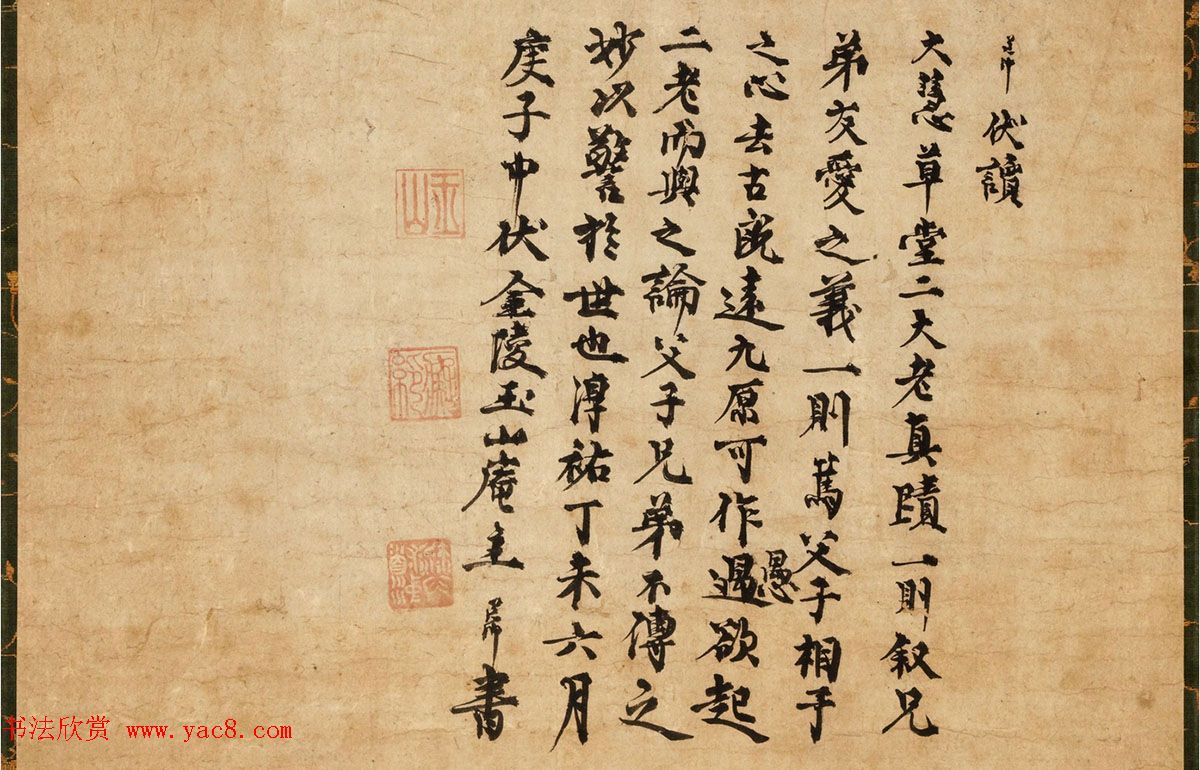 師伏讀
大慧草堂二大老真蹟一則叙兄
弟友愛之義一則篤父子相于
之心去古既遠九原可作過愚欲起
二老而與之論父子兄弟不傳之
妙以警於世也淳祐丁未六月
庚子中伏金陵玉山庵主書
玉山
书法欣赏 www.yac8.com